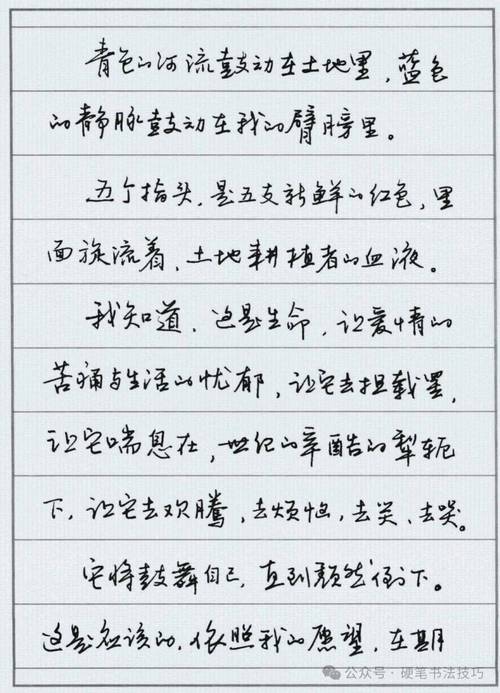 青色的河流鼓动在土地里，蓝色
的静脉鼓动在我的臂膀里。
五个指头，是五支新鲜的红色，里
面旋流着，土地耕植者的血液。
我知道，这是生命，让爱情的
苦痛与生活的忧郁，让它去担载罢，
让它喘息在，世纪的辛酷的犁轭
下，让它去欢腾，去烦恼，去笑、去哭。
它将鼓舞自己，直到颓然倒下。
这是应该的，依照我的愿望，在期
公众号·硬笔书法技巧